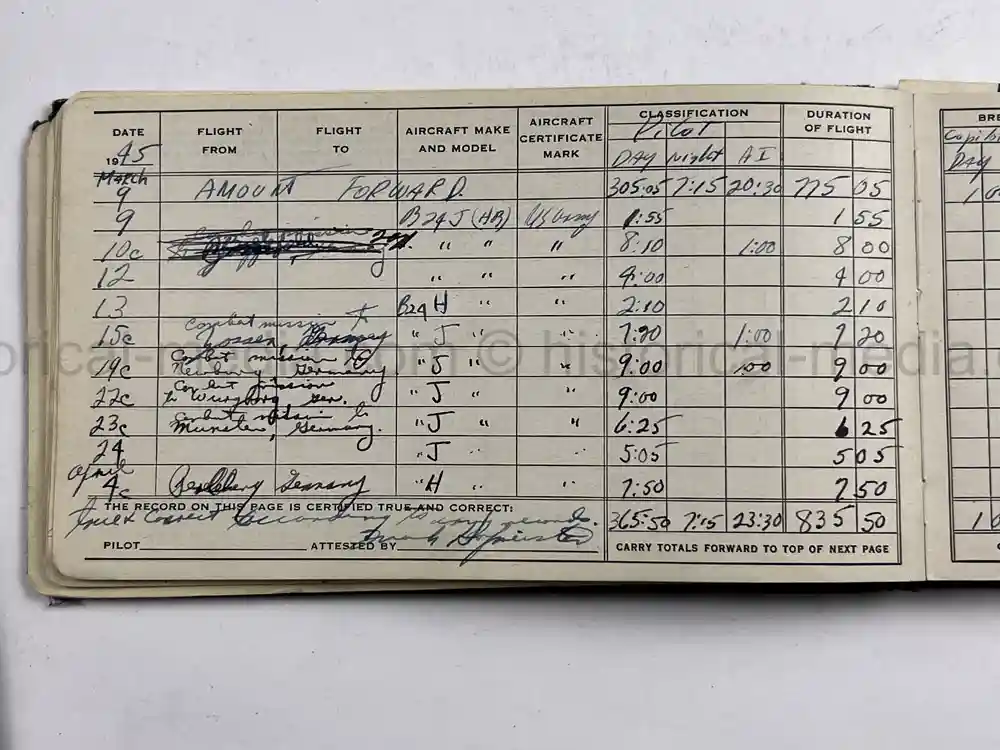 DATE FLIGHT FROM FLIGHT TO AIRCRAFT MAKE AND MODEL AIRCRAFT CERTIFICATE MARK CLASSIFICATION DURATION OF FLIGHT
1945 Pilot
DAY Night AI
March
9 AMOUNT FORWARD. 305:05 7:15 20:30 775 05
9 B24 J (HB) US Army 1:55 1 55
10c " " " 8:10 1:00 8 00
12 " " " 4:00 4 00
13 B24 H " 2:10 2 10
15c Combat mission to Zossen Germany " J " 7:20 1:00 7 20
19c Combat mission to Newburg Germany " J " " 9:00 1:00 9 00
22c Combat mission to Wurzburg Ger. " J " 9:00 9 00
23c Combat mission to Munster, Germany. " J " " 6:25 6 25
24 " J " 5:05 5 05
April
4c Germany " H " " 7:50 7 50
THE RECORD ON THIS PAGE IS CERTIFIED TRUE AND CORRECT:
True & Correct according to records. 365:50 7:15 23:30 835 50
PILOT ATTESTED BY CARRY TOTALS FORWARD TO TOP OF NEXT PAGE
DAY
© historical-media.com